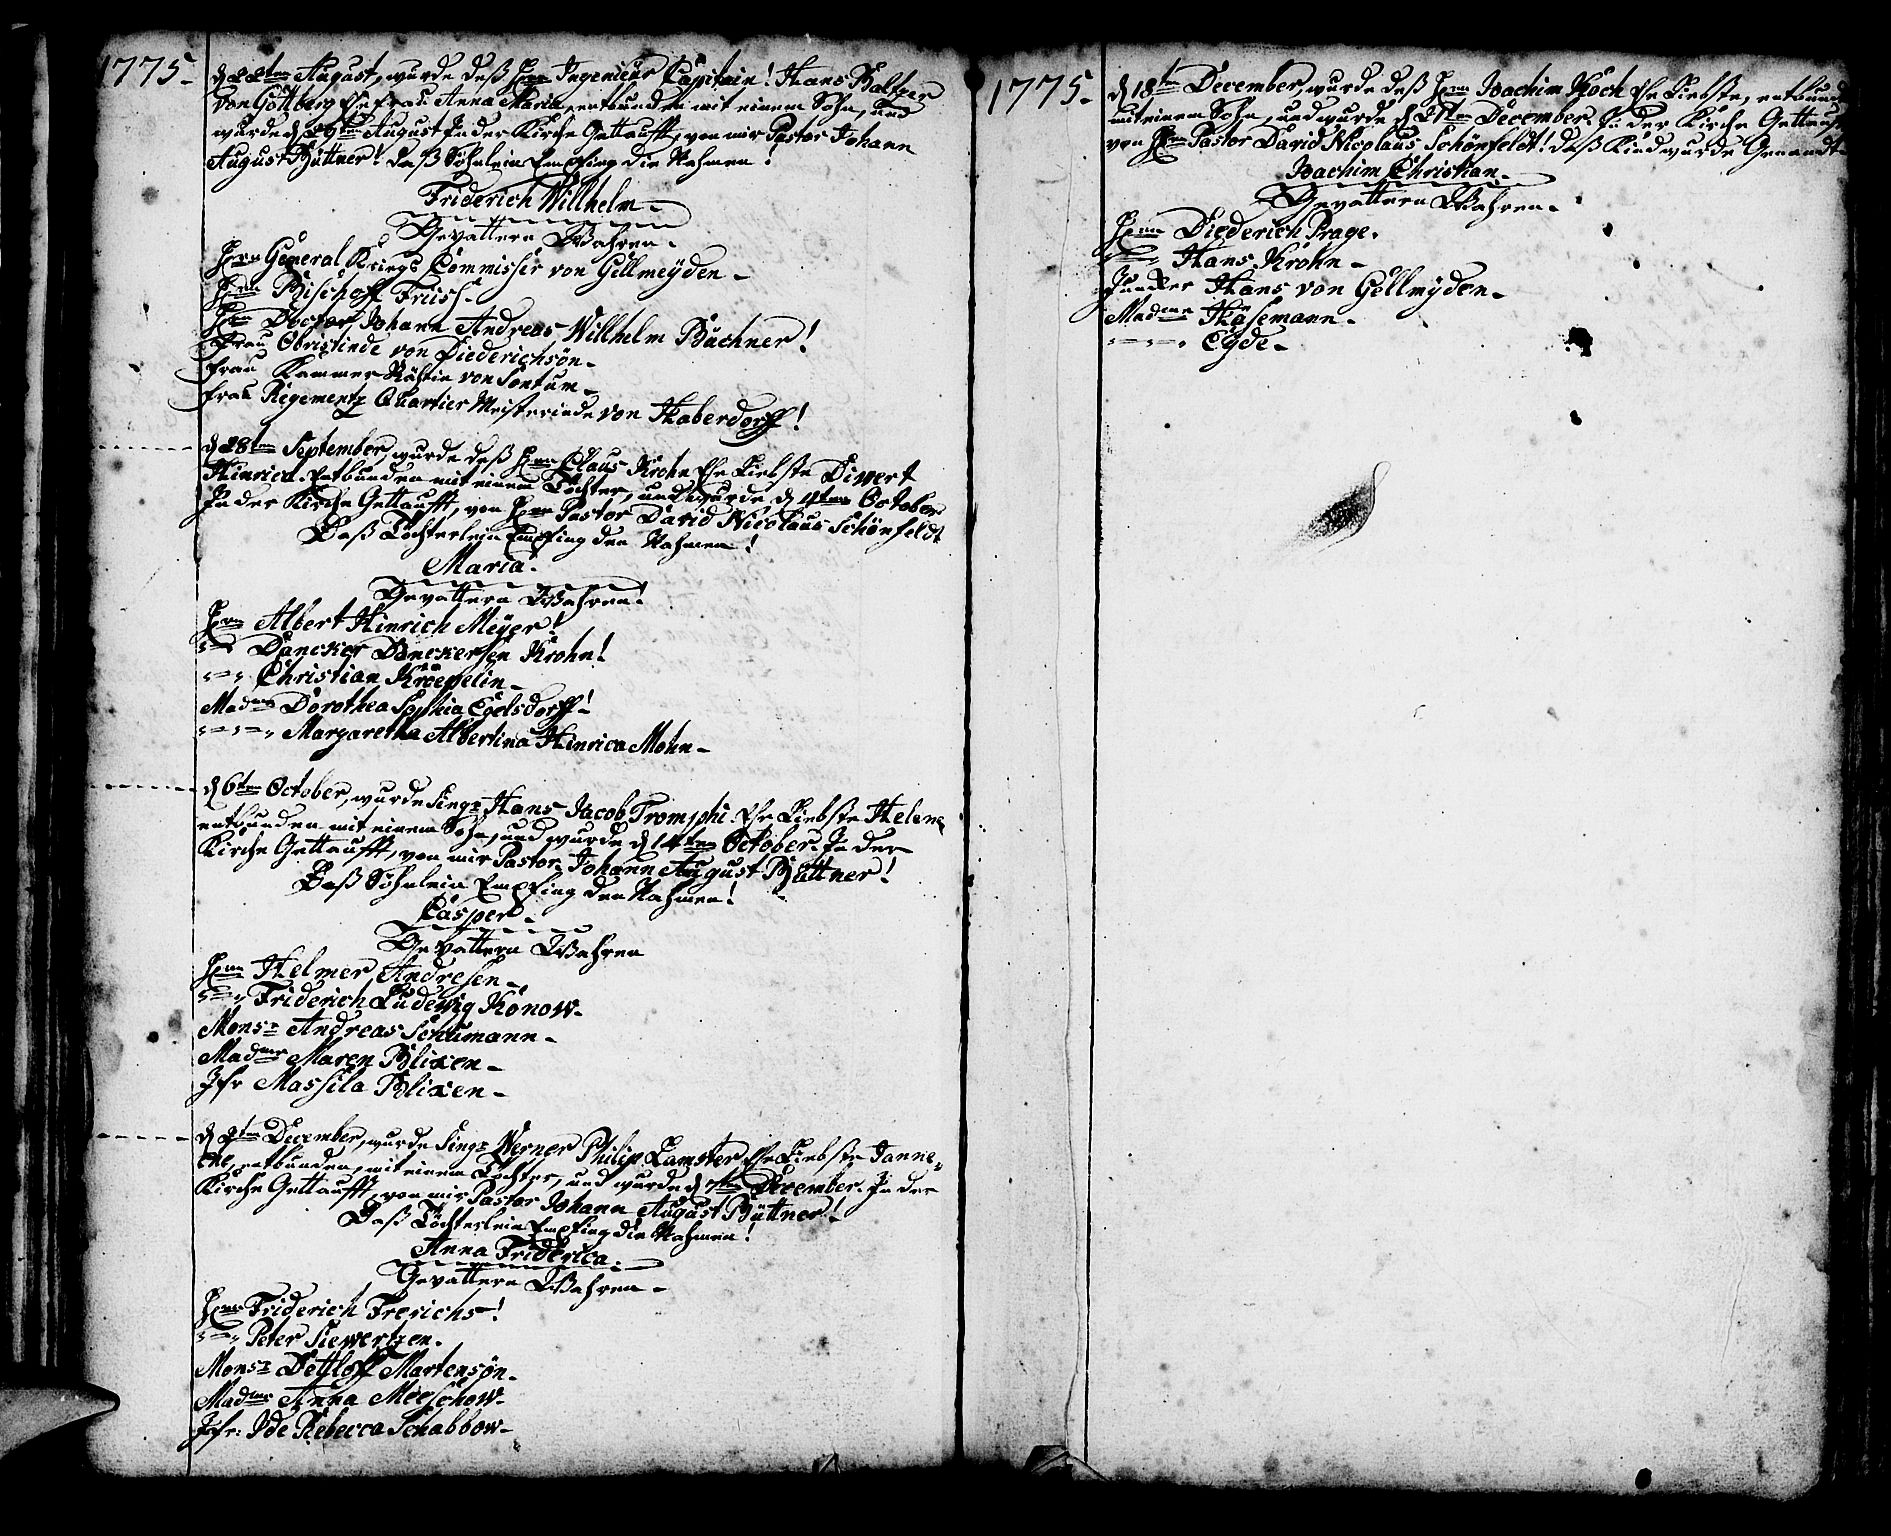 1775.
d 22ten August, wurde deß Hrn Ingenieur Capitain! Hans Baltzer
von Göttberg Ehefrau Anna Maria, entbunden mit einem Sohn, und
wurde d 29ten August In der Kirche Gettaufft, von mir Pastor Johann
August Büttner! Daß Söhnlein Empfing die Nahmen!
Friderich Willhelm
Gevattern Wahren.
Hrn General Kriegs Commissir von Gellmeÿden
Hrn Bischoff Friis
Hrn Doctor Johann Andreas Willhelm Büchner!
Frau Obristinde von Diederichsön
Frau Kammer Räthin von Sontum
Frau Regementz Quartier Meisterinde von Haberdorff!
d 28ten September, wurde deß Hrn Claus Krohn Ehe Liebste Diwert
Hinrica. Entbunden mit einem Tochter, und wurde d 4ten October
In der Kirche Gettaufft, von Hrn Pastor David Nicolaus Schönfeldt
Daß Töchterlein Empfing den Nahmen!
Maria.
Gevattern Wahren!
Hrn Albert Hinrich Meÿer!
Dancker Danckersen Krohn!
Christian Kröepelin
Madme Dorothea Sophia Egelsdorff!
Margaretha Albertina Hinrica Mohn
d 6ten October, wurde Singr Hans Jacob Tromphi. Ehe Liebste Helena
entbunden mit einem Sohn, und wurde d 14ten October. In der
Kirche Gettaufft, von mir Pastor Johann August Büttner!
Daß Söhnlein Empfing den Nahmen!
Casper
Gevattern Wahren
Hrn Helmer Andresen
Friderich Ludewig Konow
Monsr Andreas Schumann
Madme Maren Blixen
Jfr Massila Blixen
d 2ten December, wurde Singr Werner Philip Lamster, Ehe Liebste Janne-
cke, entbunden, mit einem Tochter, und wurde d 7ten December. In der
Kirche Gettaufft, von mir Pastor Johann August Büttner!
Daß Töchterlein Empfing die Nahmen!
Anna Friderica.
Gevattern Wahren
Hrn Friderich Frerichs!
Peter Siewertzen.
Monsr Dettloff Martensön.
Madme Anna Meeschow
Jfr: Ide Rebecca Schabbow
1775.
d 18ten December, wurde deß Hrn Joachim Koch Ehe Liebste, entbunden
mit einem Sohn, und wurde d 21ten December. In der Kirche Gettaufft
von Hrn Pastor David Nicolaus Schönfeldt! Daß Kind wurde Genandt
Joachim Christian
Gevattern Wahren
Hrn Diederich Prage.
Hans Krohn
Juncker Hans von Gellmÿden
Madme Hasemann
Egde